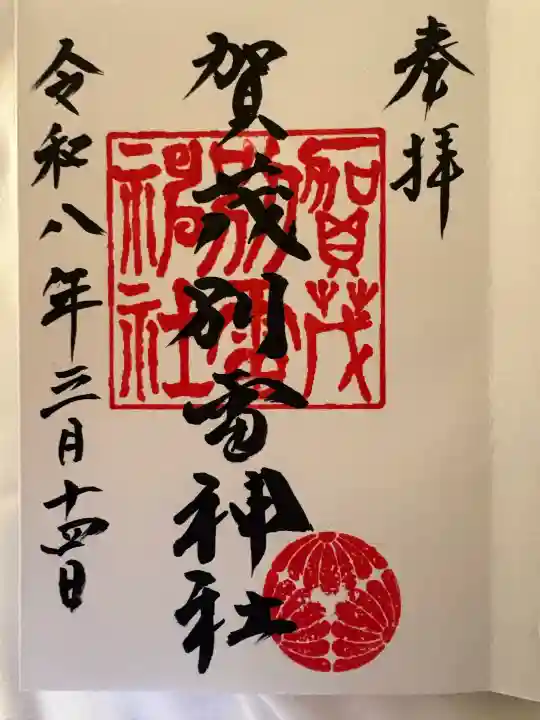 奉拝
賀茂別雷神社
賀茂
別雷
神社
令和八年三月十四日